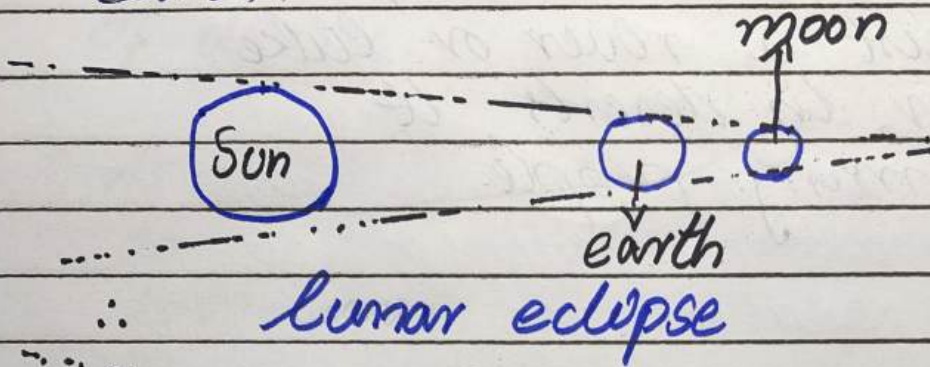 moon
Sun
earth
lunar eclipse